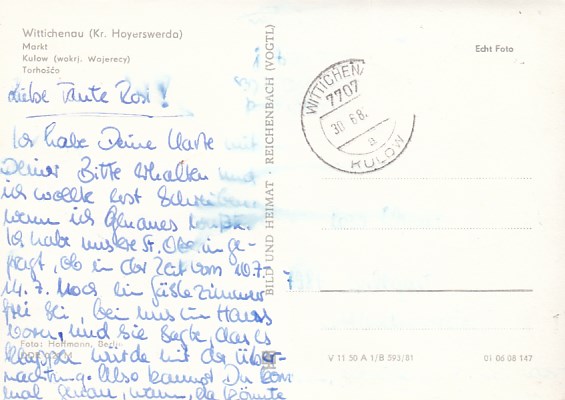 Wittichenau (Kr. Hoyerswerda)
Markt
Kulow (wokrj. Wojerecy)
Torhošćo
Echt Foto
Liebe Tante Rosi!
Ich habe Deine Karte mit
Deiner Bitte erhalten und
ich wollte erst Schreiben,
wenn ich Genaues weiß.
Ich habe unsere Sr. Oberin ge-
fragt, ob in der Zeit vom 10.7. - 
14.7. noch ein Gästezimmer
frei sei, bei uns im Haus
, und sie sagte, das es
klappen würde mit der Über-
nachtung. Also kannst Du
mal , wann, da könnte
Foto: Hoffmann, Berlin
BILD UND HEIMAT · REICHENBACH (VOGTL)
WITTICHENAU
7707
30.6.8
a
KULOW
V 11 50 A 1/B 593/81
01 06 08 147